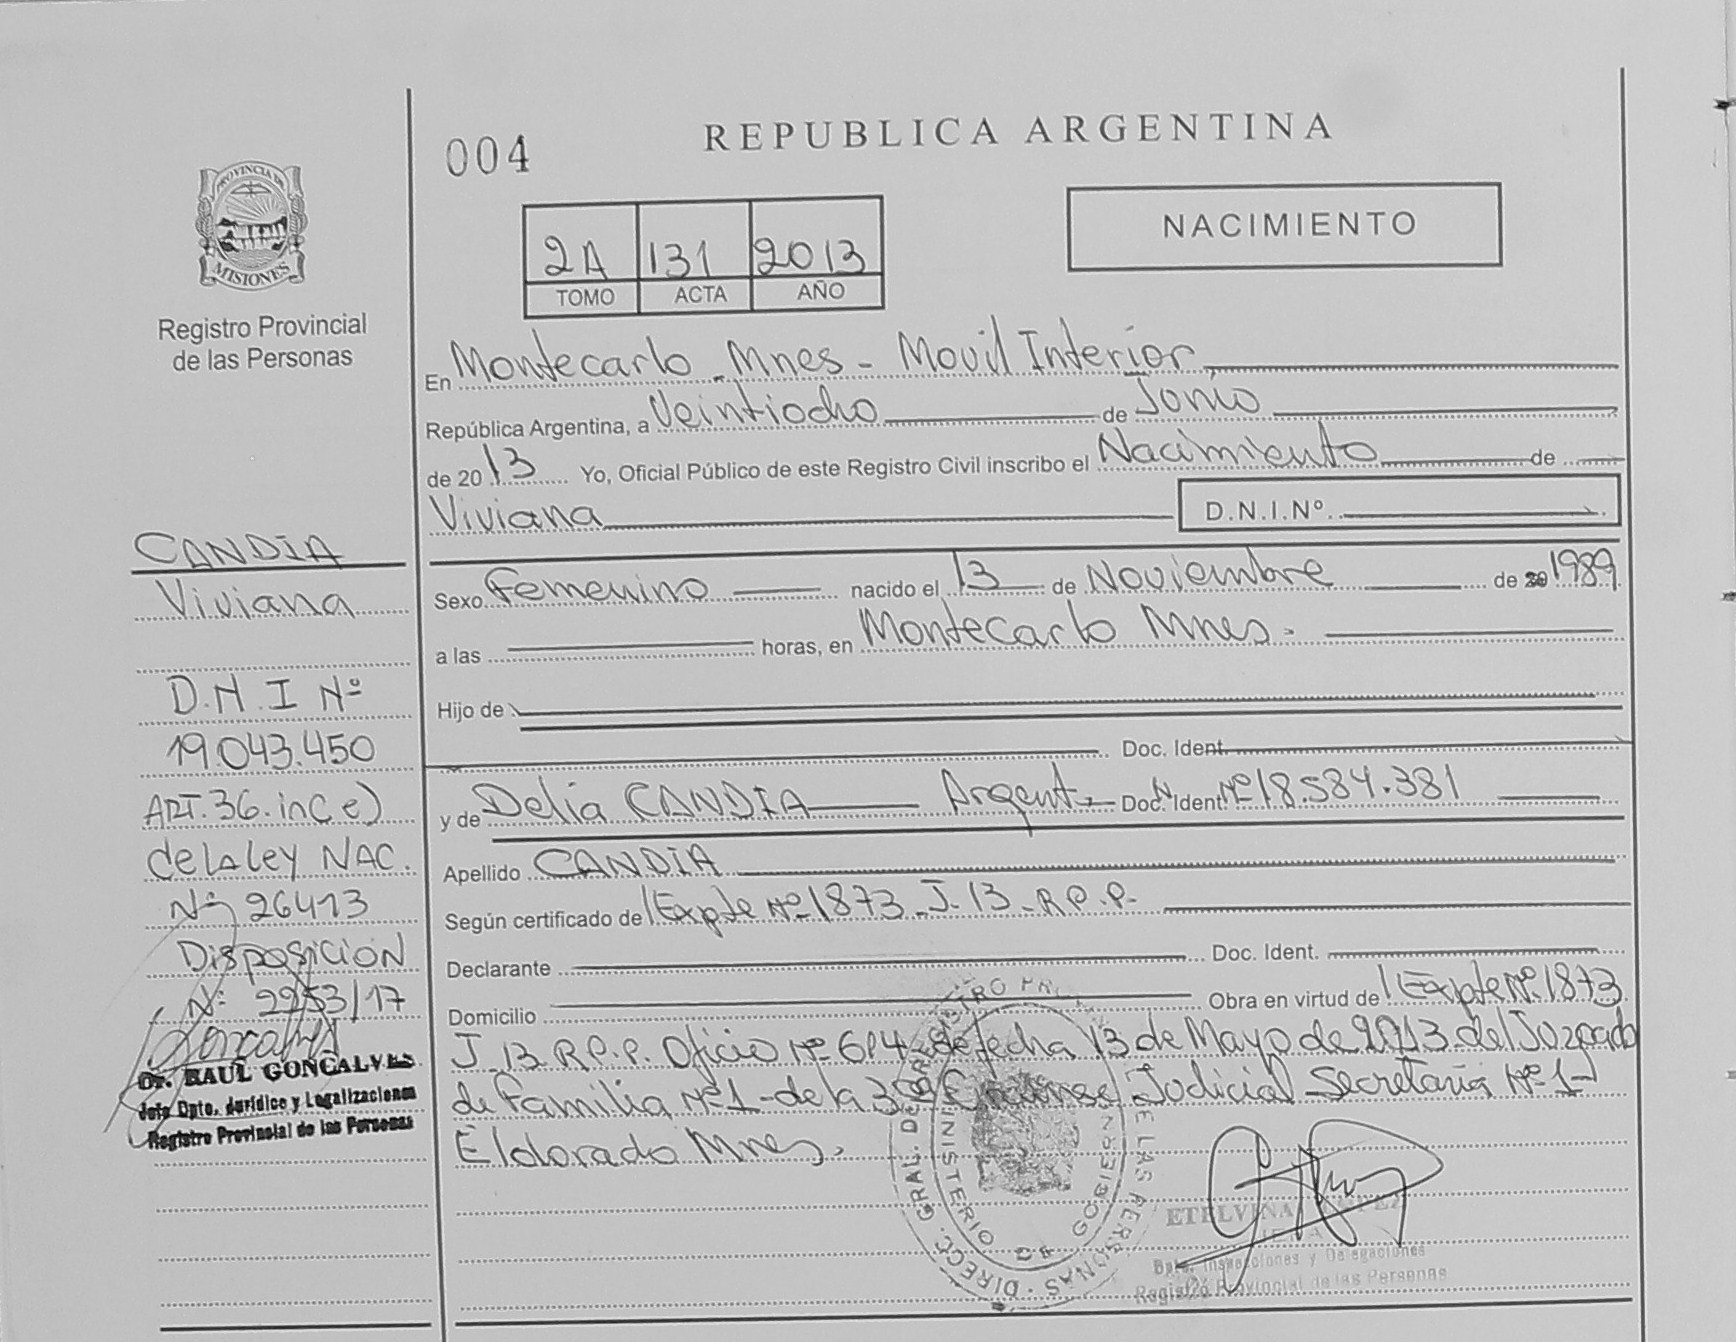 PROVINCIA DE
MISIONES
Registro Provincial
de las Personas
CANDIA
Viviana
D.N.I Nº
19.043.450
ART. 36. inc e)
de la ley NAC.
Nº 26413
Disposición
Nº 2253/17
Dr. RAUL GONCALVES
Jefe Dpto. Jurídico y Legalizaciones
Registro Provincial de las Personas
004
REPUBLICA ARGENTINA
2A 131 2013
TOMO ACTA AÑO
NACIMIENTO
En Montecarlo Mnes - Movil Interior
República Argentina, a Veintiocho de Junio
de 2013 Yo, Oficial Público de este Registro Civil inscribo el Nacimiento de
Viviana D.N.I.Nº.
Sexo Femenino nacido el 13 de Noviembre de 20 1989
a las horas, en Montecarlo Mnes.
Hijo de
Doc. Ident.
y de Delia CANDIA Argent. Doc. Ident. Nº 18.584.381
Apellido CANDIA
Según certificado de Expte Nº 1873-J-13-R.P.P.
Declarante Doc. Ident.
Domicilio Obra en virtud de Expte Nº 1873
J 13 R.P.P. Oficio Nº 614 de fecha 13 de Mayo de 2013 del Juzgado
de Familia Nº 1 - de la 3 Judicial Secretaria Nº 1-
Eldorado Mnes.
ETELVINA
Dpto. Inspecciones y Delegaciones
Registro Provincial de las Personas